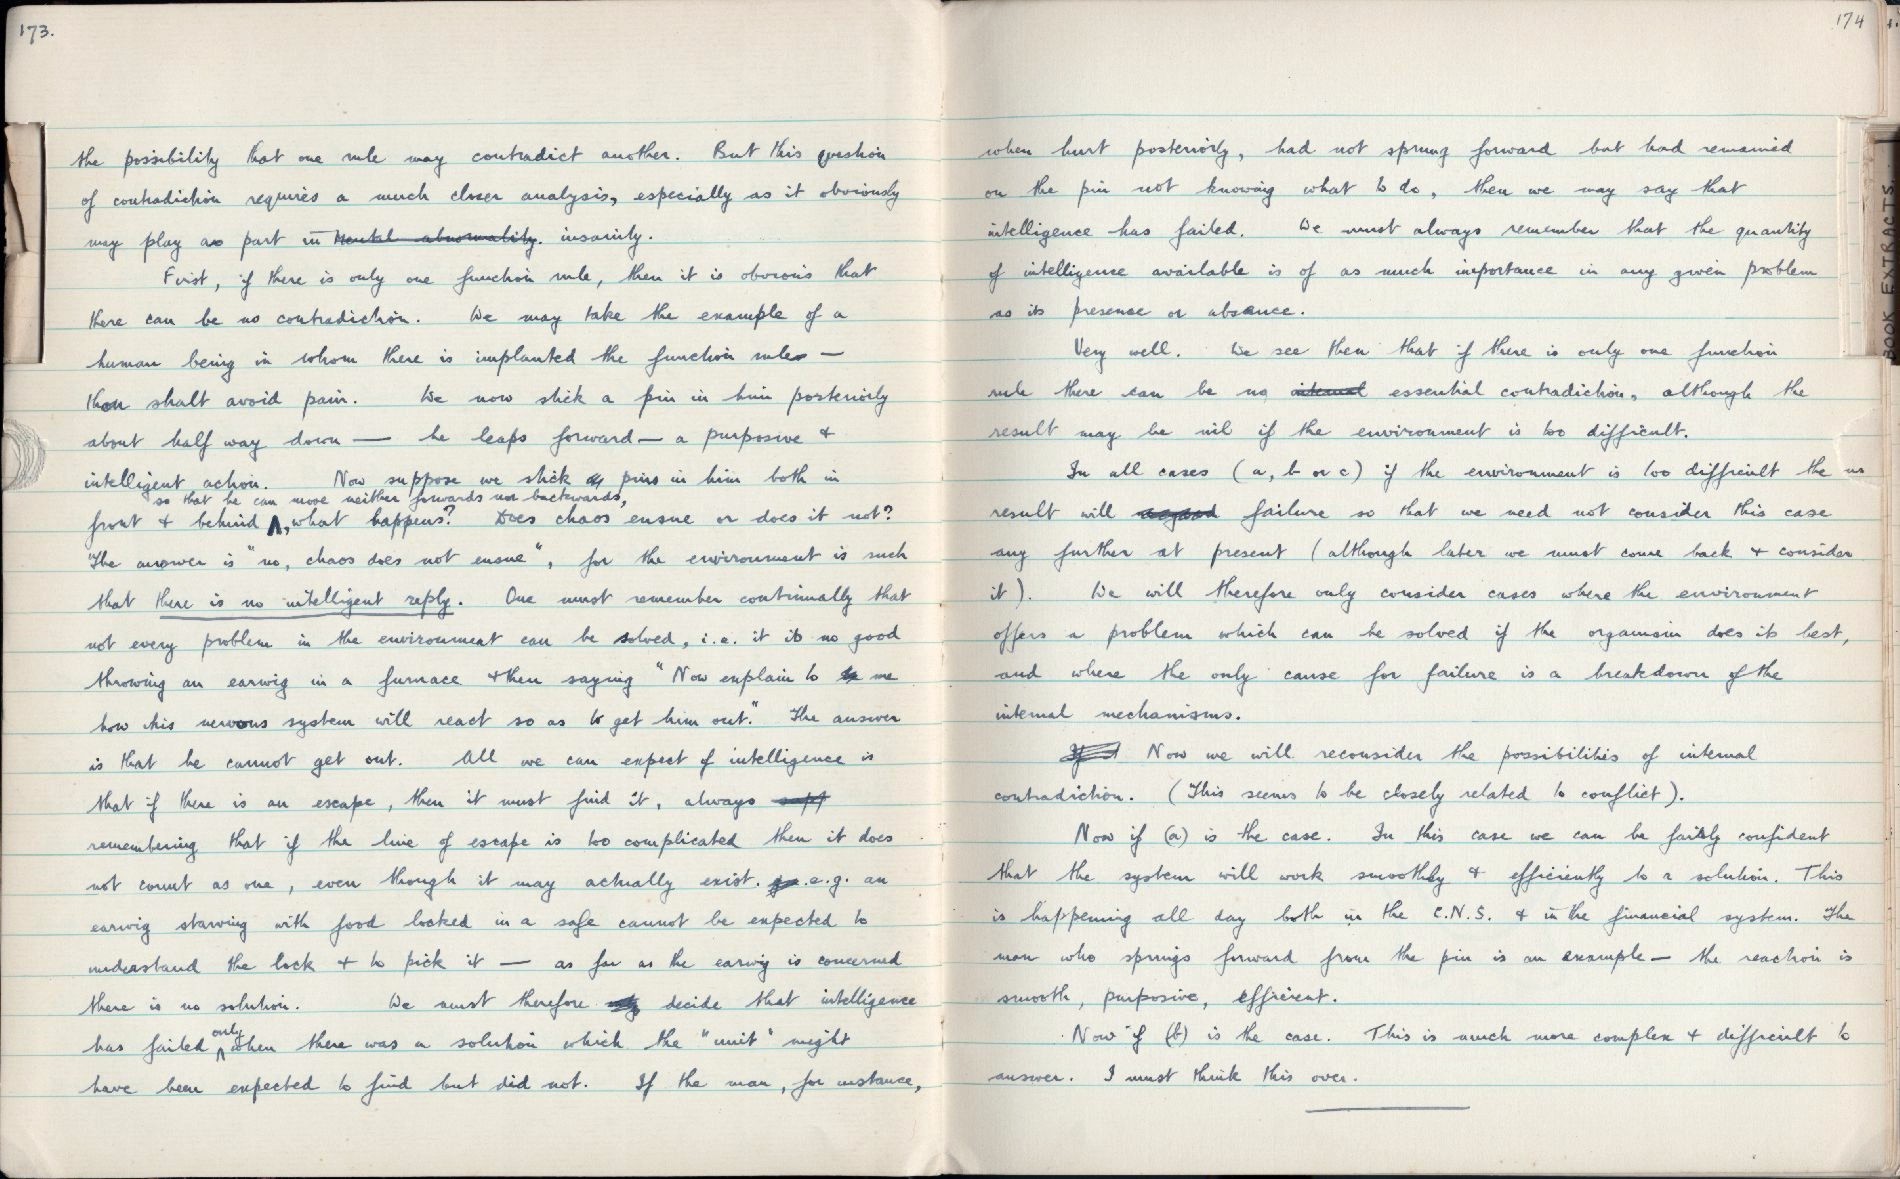 173.
the possibility that one rule may contradict another. But this question
of contradiction requires a much closer analysis, especially as it obviously
may play a part in mental abnormality. insanity.
First, if there is only one function rule, then it is obvious that
there can be no contradiction. We may take the example of a
human being in whom there is implanted the function rule —
thou shalt avoid pain. We now stick a pin in him posteriorly
about half way down — he leaps forward — a purposive &
intelligent action. Now suppose we stick pins in him both in
so that he can move neither forwards nor backwards,
front & behind ∧, what happens? Does chaos ensue or does it not?
The answer is "no, chaos does not ensue", for the environment is such
that there is no intelligent reply. One must remember continually that
not every problem in the environment can be solved, i.e. it is no good
throwing an earwig in a furnace & then saying "Now explain to me
how his nervous system will react so as to get him out." The answer
is that he cannot get out. All we can expect of intelligence is
that if there is an escape, then it must find it, always
remembering that if the line of escape is too complicated then it does
not count as one, even though it may actually exist. e.g. an
earwig starving with food locked in a safe cannot be expected to
understand the lock & to pick it — as far as the earwig is concerned
there is no solution. We must therefore decide that intelligence
only
has failed ∧ when there was a solution which the "unit" might
have been expected to find but did not. If the man, for instance,
174
when hurt posteriorly, had not sprung forward but had remained
on the pin not knowing what to do, then we may say that
intelligence has failed. We must always remember that the quantity
of intelligence available is of as much importance in any given problem
as its presence or absence.
Very well. We see then that if there is only one function
rule there can be no internal essential contradiction, although the
result may be nil if the environment is too difficult.
In all cases (a, b or c) if the environment is too difficult the
result will failure so that we need not consider this case
any further at present (although later we must come back & consider
it). We will therefore only consider cases where the environment
offers a problem which can be solved if the organism does its best,
and where the only cause for failure is a breakdown of the
internal mechanisms.
Now we will reconsider the possibilities of internal
contradiction. (This seems to be closely related to conflict).
Now if (a) is the case. In this case we can be fairly confident
that the system will work smoothly & efficiently to a solution. This
is happening all day both in the C.N.S. & in the financial system. The
man who springs forward from the pin is an example — the reaction is
smooth, purposive, efficient.
Now if (b) is the case. This is much more complex & difficult to
answer. I must think this over.
BOOK EXTRACTS